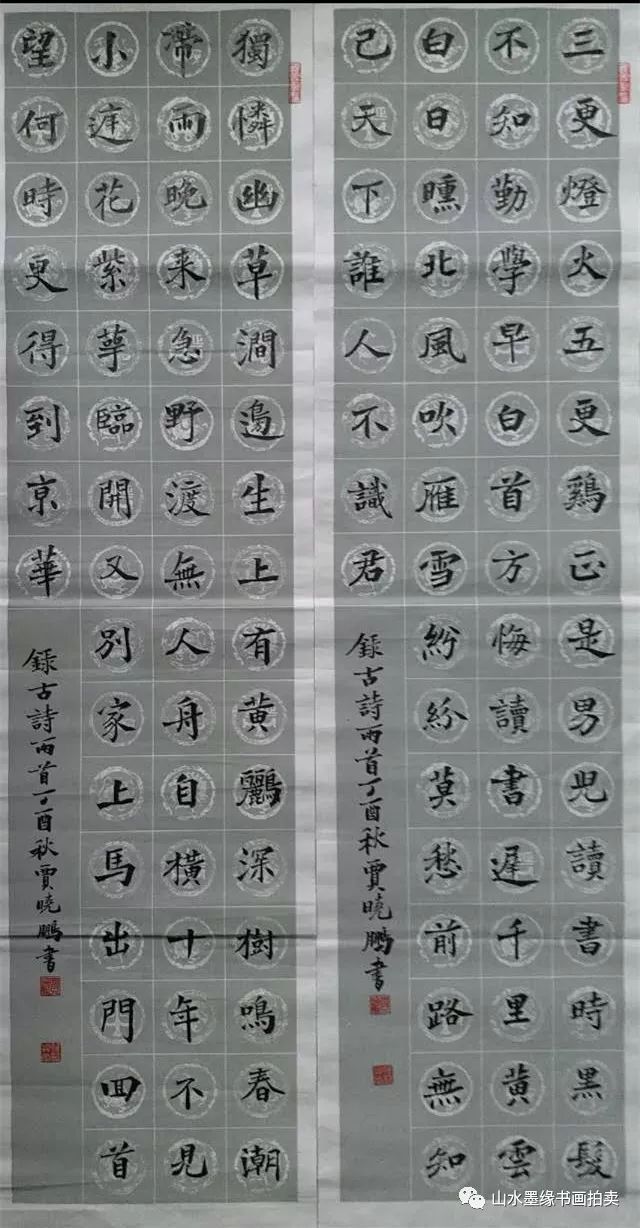 三更燈火五更鷄正是男兒讀書時黑髮
不知勤學早白首方悔讀書遲千里黃雲
白日曛北風吹雁雪紛紛莫愁前路無知
己天下誰人不識君
錄古詩兩首丁酉秋賈曉鵬書
獨憐幽草澗邊生上有黃鸝深樹鳴春潮
帶雨晚来急野渡無人舟自橫十年不見
小庭花紫萼臨開又別家上馬出門回首
望何時更得到京華
錄古詩兩首丁酉秋賈曉鵬書
山水墨缘书画拍卖